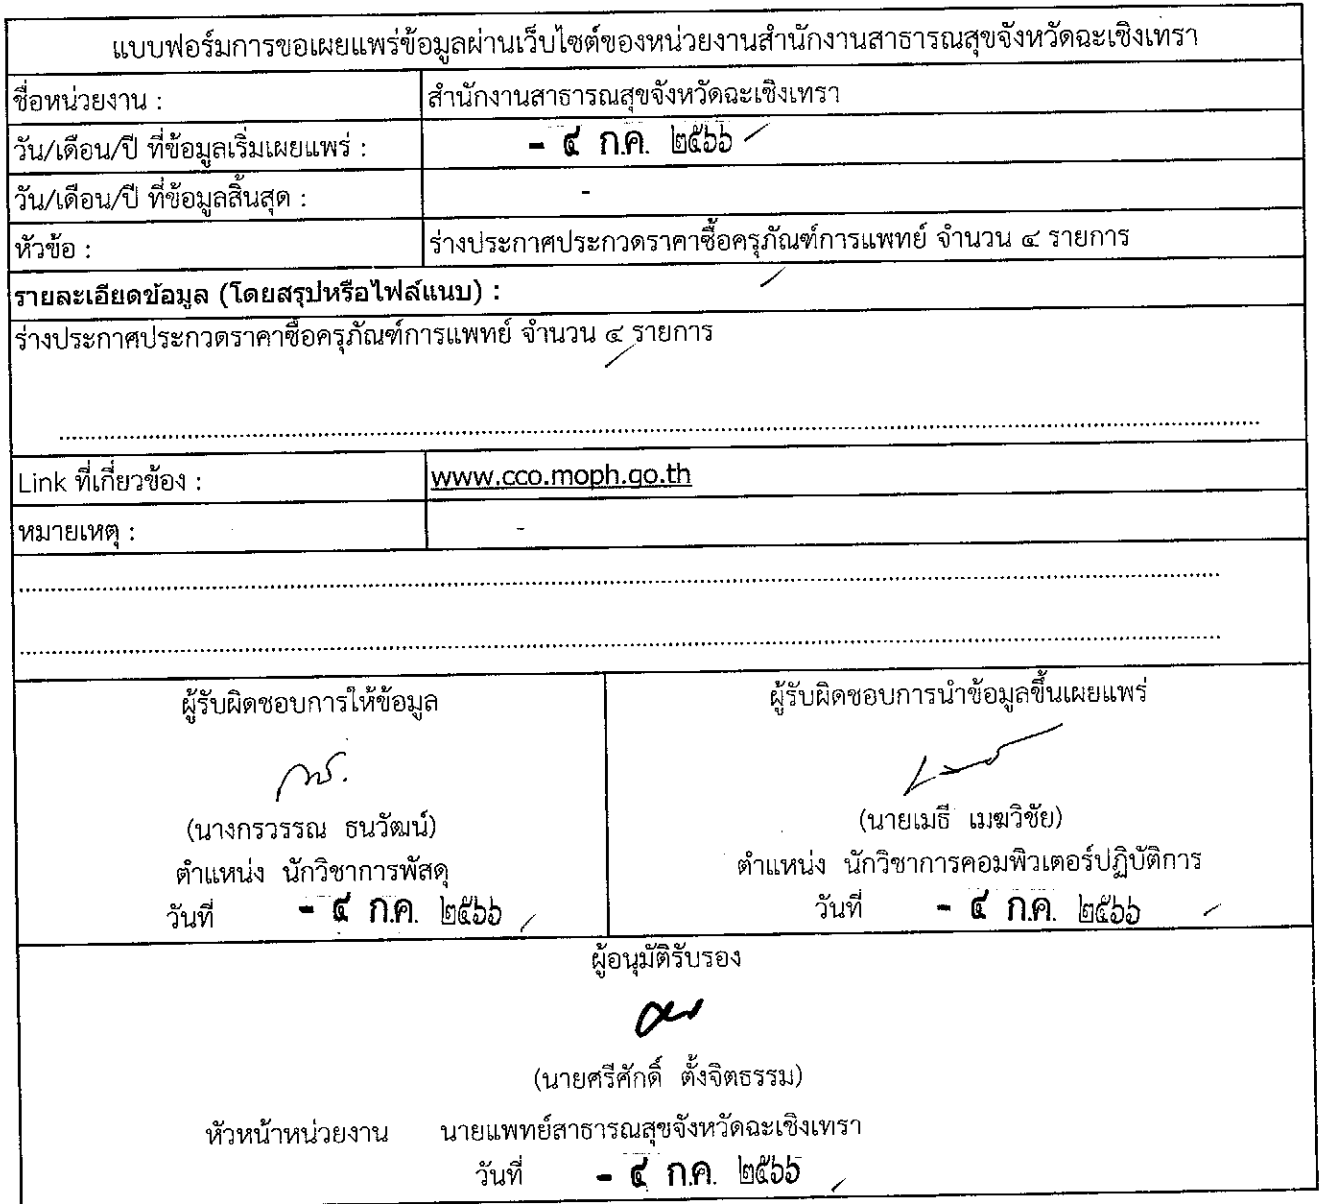 แบบฟอร์มการขอเผยแพร่ข้อมูลผ่านเว็บไซต์ของหน่วยงานสำนักงานสาธารณสุขจังหวัดฉะเชิงเทรา
ชื่อหน่วยงาน : สำนักงานสาธารณสุขจังหวัดฉะเชิงเทรา
วัน/เดือน/ปี ที่ข้อมูลเริ่มเผยแพร่ : - ๔ ก.ค. ๒๕๖๖
วัน/เดือน/ปี ที่ข้อมูลสิ้นสุด : -
หัวข้อ : ร่างประกาศประกวดราคาซื้อครุภัณฑ์การแพทย์ จำนวน ๔ รายการ
รายละเอียดข้อมูล (โดยสรุปหรือไฟล์แนบ) :
ร่างประกาศประกวดราคาซื้อครุภัณฑ์การแพทย์ จำนวน ๔ รายการ
Link ที่เกี่ยวข้อง : www.cco.moph.go.th
หมายเหตุ : -
ผู้รับผิดชอบการให้ข้อมูล
(นางกรวรรณ ธนวัฒน์)
ตำแหน่ง นักวิชาการพัสดุ
วันที่ - ๔ ก.ค. ๒๕๖๖
ผู้รับผิดชอบการนำข้อมูลขึ้นเผยแพร่
(นายเมธี เมฆวิชัย)
ตำแหน่ง นักวิชาการคอมพิวเตอร์ปฏิบัติการ
วันที่ - ๔ ก.ค. ๒๕๖๖
ผู้อนุมัติรับรอง
(นายศรีศักดิ์ ตั้งจิตธรรม)
หัวหน้าหน่วยงาน นายแพทย์สาธารณสุขจังหวัดฉะเชิงเทรา
วันที่ - ๔ ก.ค. ๒๕๖๖